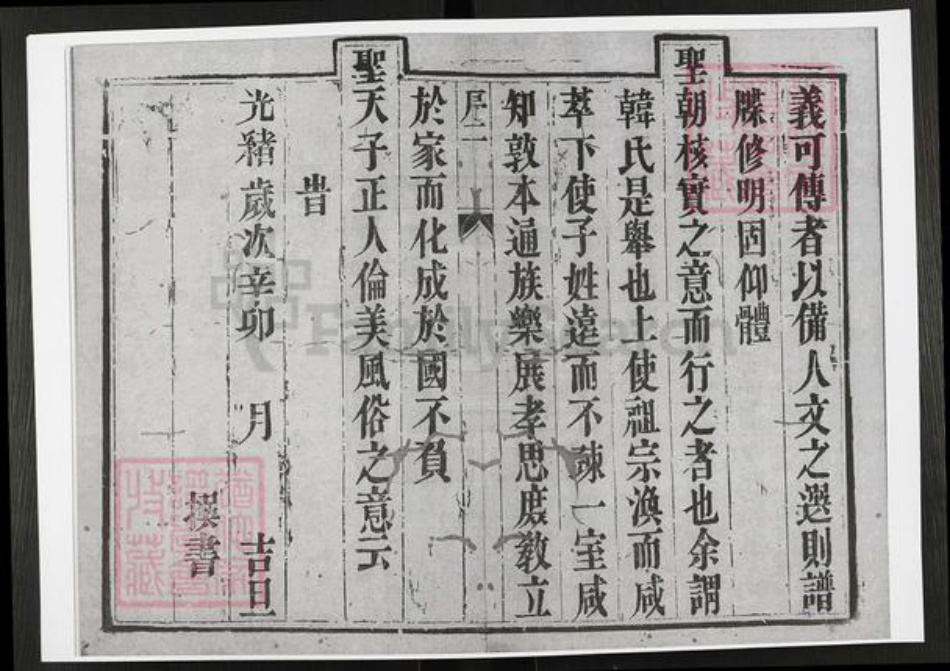 義可傳者以備人文之選則譜
牒修明固仰體
聖朝核實之意而行之者也余謂
韓氏是舉也上使祖宗渙而咸
萃下使子姓遠而不踈一室咸
知敦本通族樂展孝思庶敎立
序二
於家而化成於國不負
聖天子正人倫美風俗之意云
旹
光緒歲次辛卯 月 吉旦
撰書
FamilySearch